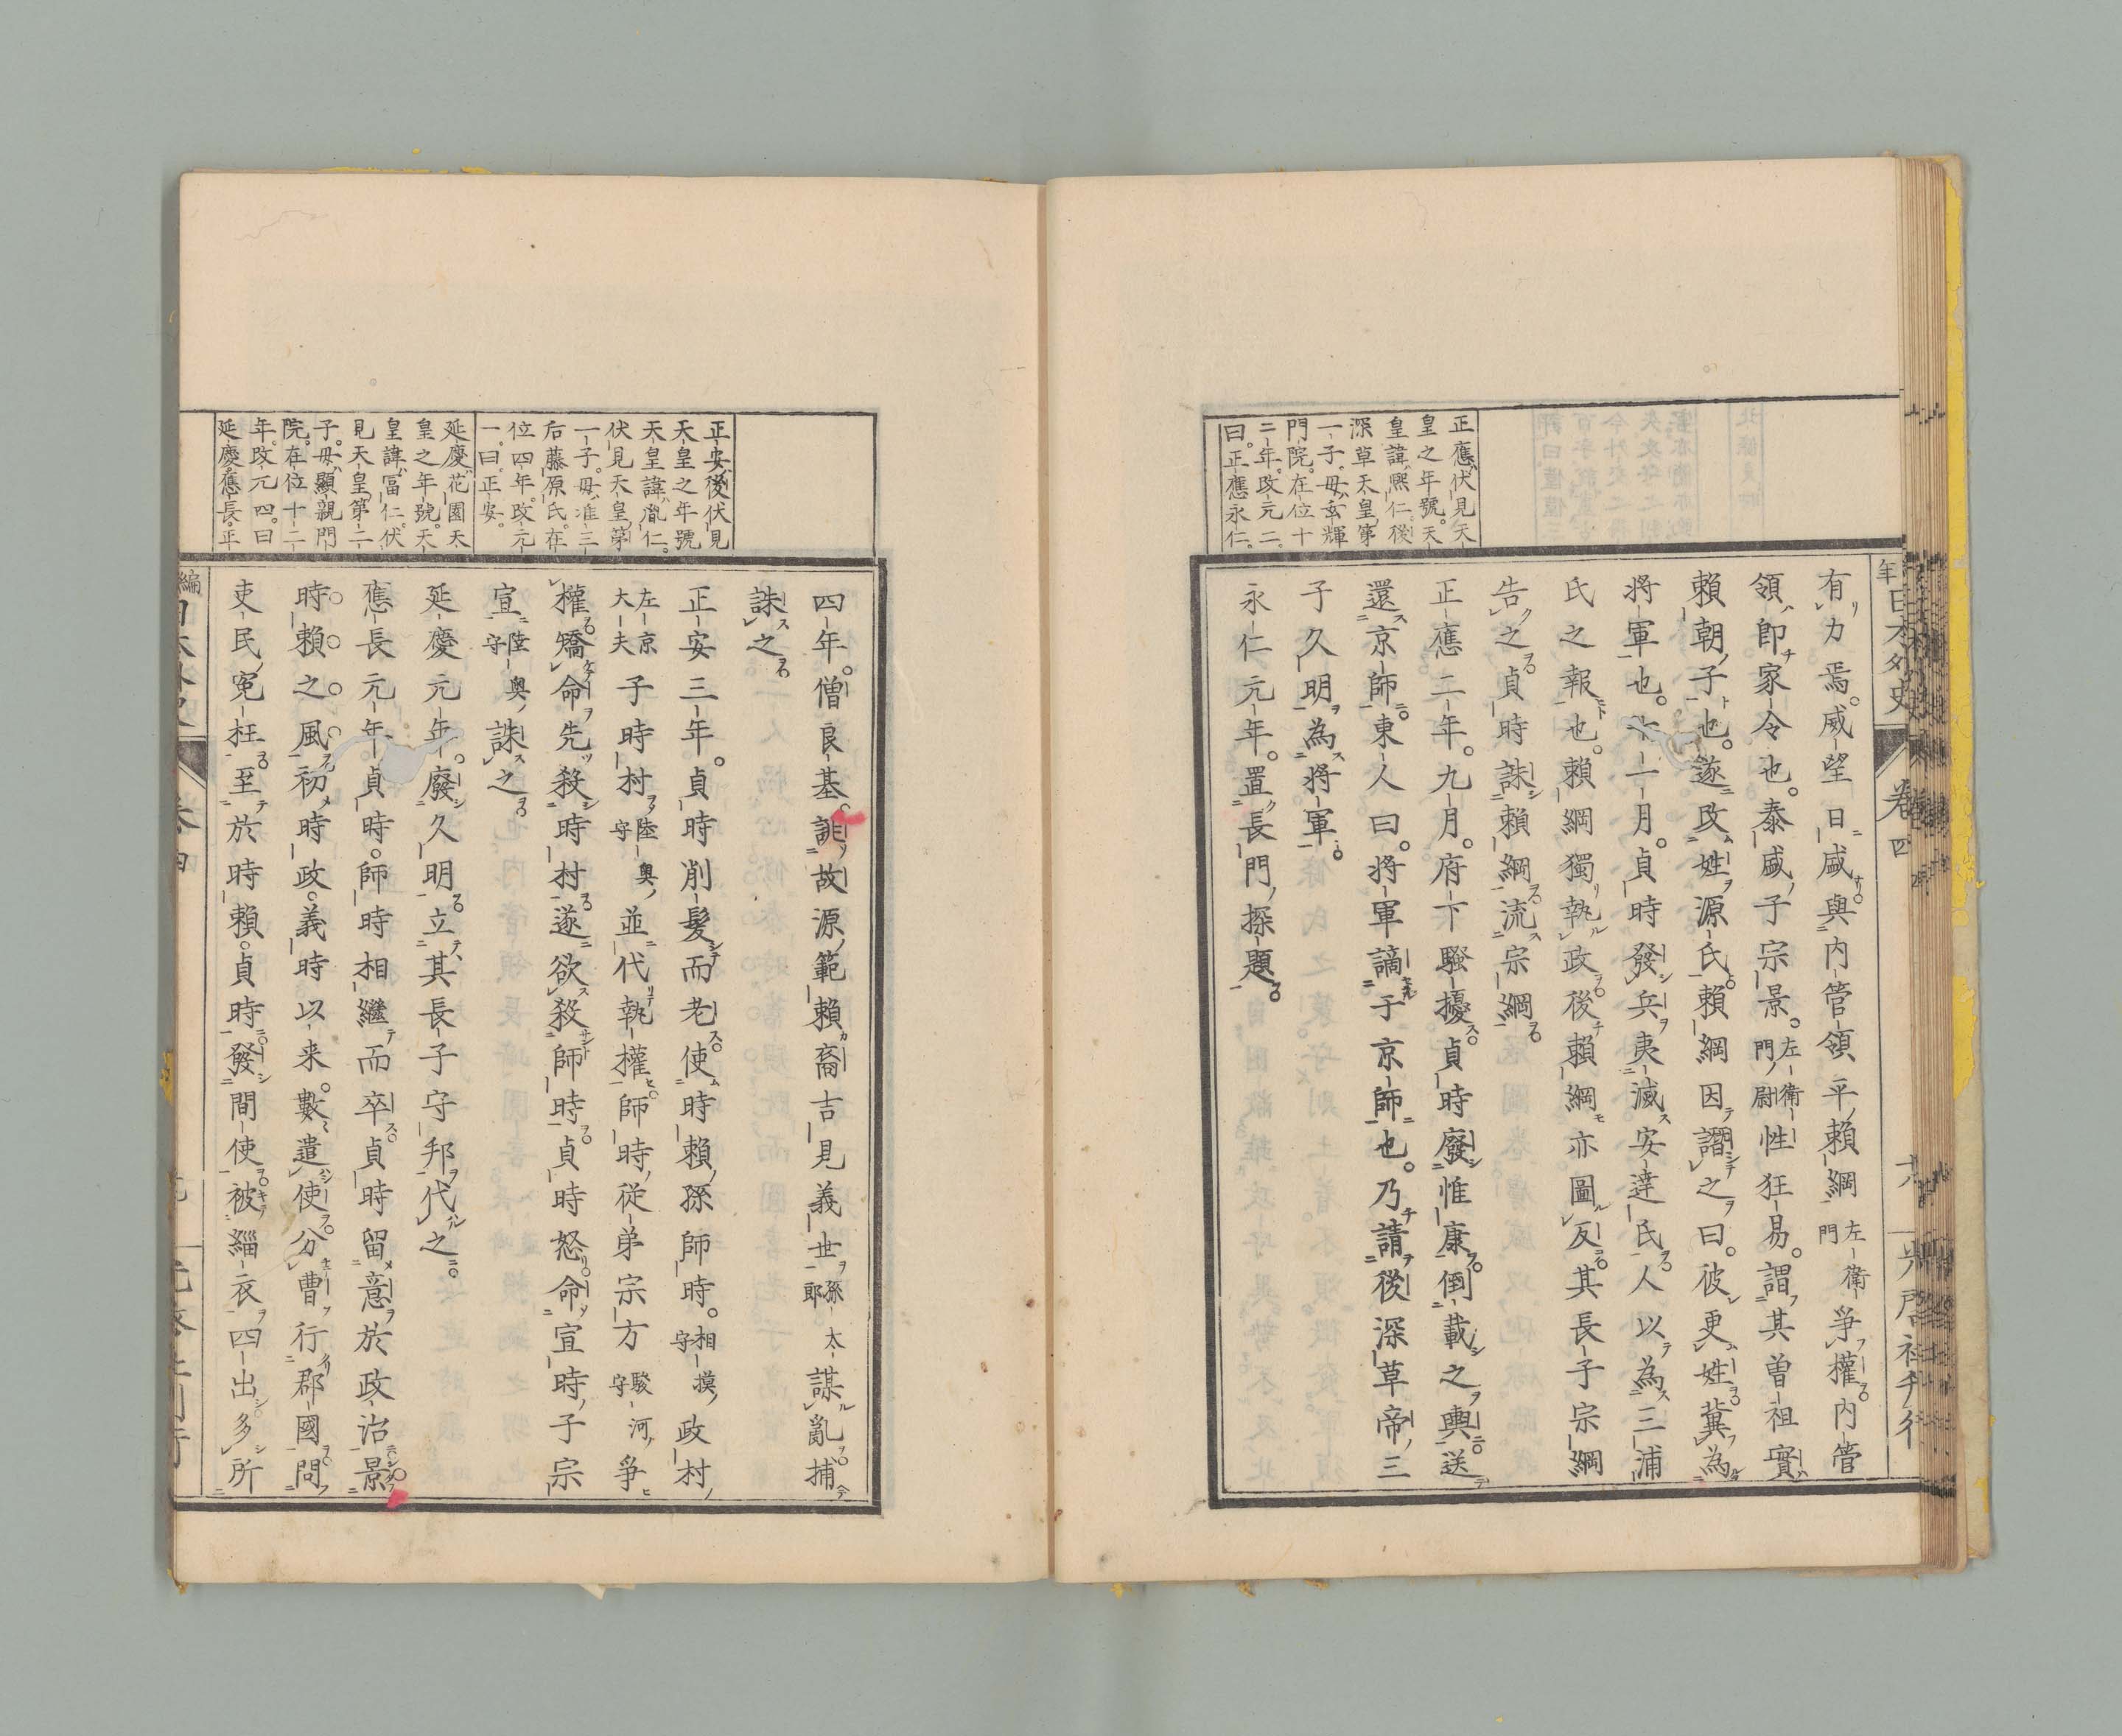 正應伏見天
皇之年號。天
皇諱熈仁。後
深草天皇第
一子。毋玄輝
門院。在位十
二年。改元二。
曰。正應永仁。
有力焉。威望日盛與内管領平賴綱左衛門爭權。内管
領即家令也。泰盛子宗景。左衛門尉性狂易。謂其曽祖實
賴朝子也。遂改姓源氏。賴綱因譖之曰。彼更姓冀為
將軍也。十一月。貞時發兵夷滅安達氏人以為三浦
氏之報也。賴綱獨執政後賴綱亦圖反其長子宗綱
告之貞時誅賴綱流宗綱
正應二年。九月。府下騷擾。貞時廢惟康倒載之輿送
還京師。東人曰。將軍謫于京師也。乃請後深草帝三
子久明為將軍。
永仁元年。置長門探題
卷四
正安後伏見
天皇之年號
天皇諱胤仁。
伏見天皇第
一子。毋准三
后藤原氏。在
位四年。改元
一。曰。正安。
延慶花園天
皇之年號。天
皇諱冨仁。伏
見天皇第二
子。毋顯親門
院。在位十二
年。改元四。曰
延慶應長正
四年。僧良基。誂故源範賴裔吉見義世孫太郎謀亂捕
誅之
正安三年。貞時削髮而老。使時賴孫師時。相摸守政村
子時村左京大夫陸奥守並代執權。師時從弟宗方駿河守爭
權矯命先殺時村遂欲殺師時。貞時怒。命宣時子宗
宣陸奥守誅之
延慶元年。廢久明立其長子守邦代之。
應長元年貞時。師時相繼而卒。貞時留意於政治景
時賴之風初時政。義時以来。數遣使分曹行郡國問
吏民寃枉至於時賴。貞時發間使被緇衣四出多所